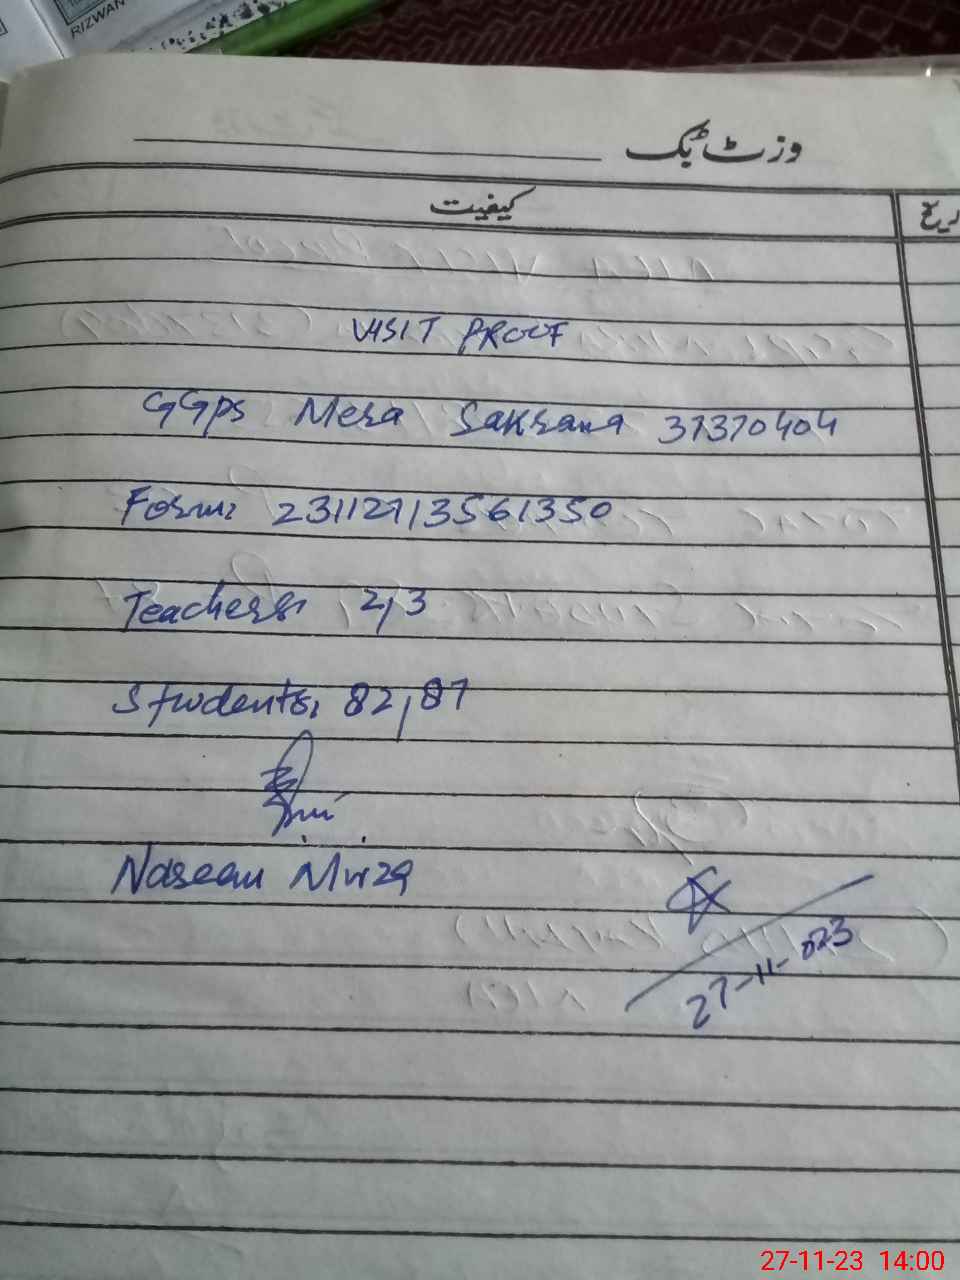 RIZWAN
وزٹ بک
کیفیت
VISIT PROOF
GGps Mera Sakrana 37370404
Form: 23112713561350
Teachers: 2,3
Students: 82,87
Naseem Mirza
27-11-023
27-11-23 14:00